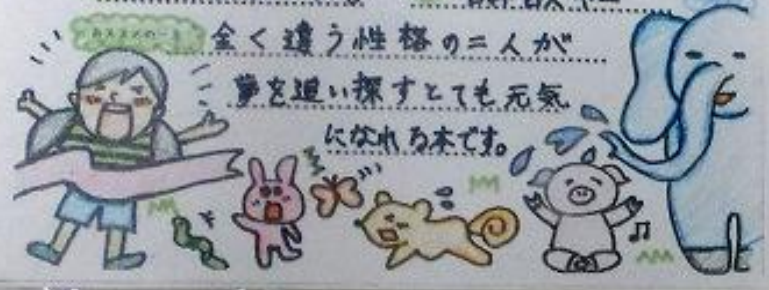 おススメの一言
全く違う性格の二人が
夢を追い探すとても元気
になれる本です。